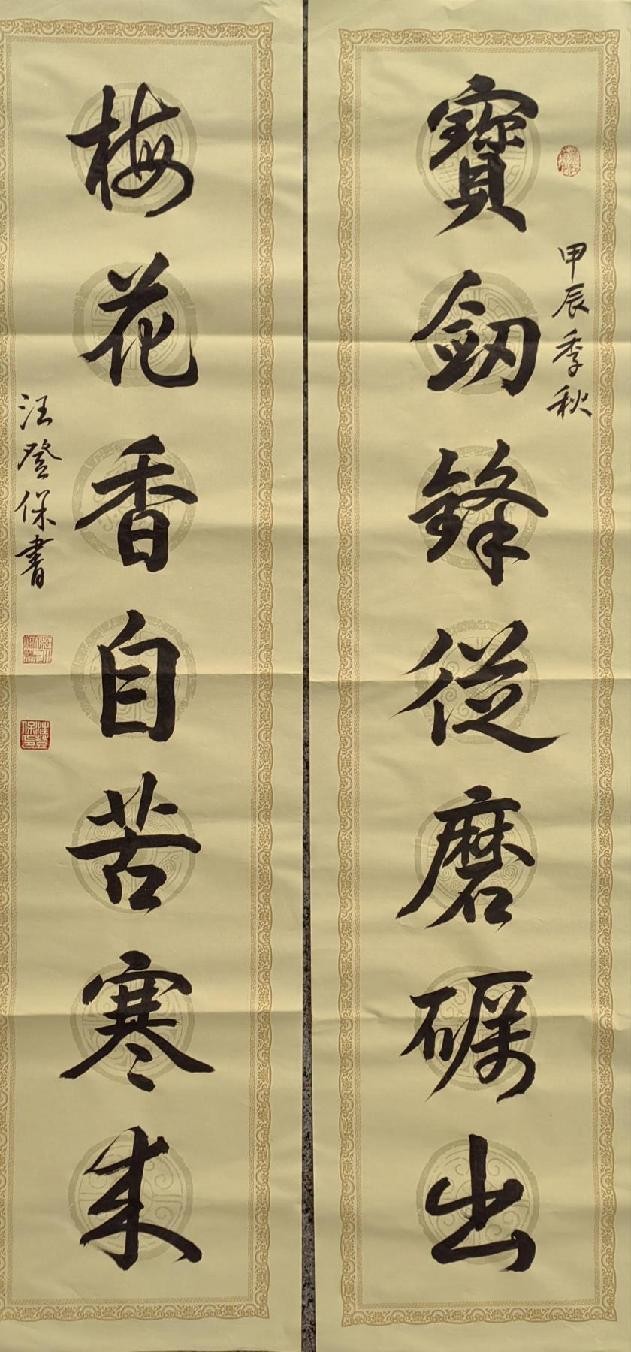 甲辰季秋
寶劔鋒從磨礪出
梅花香自苦寒来
汪登保書